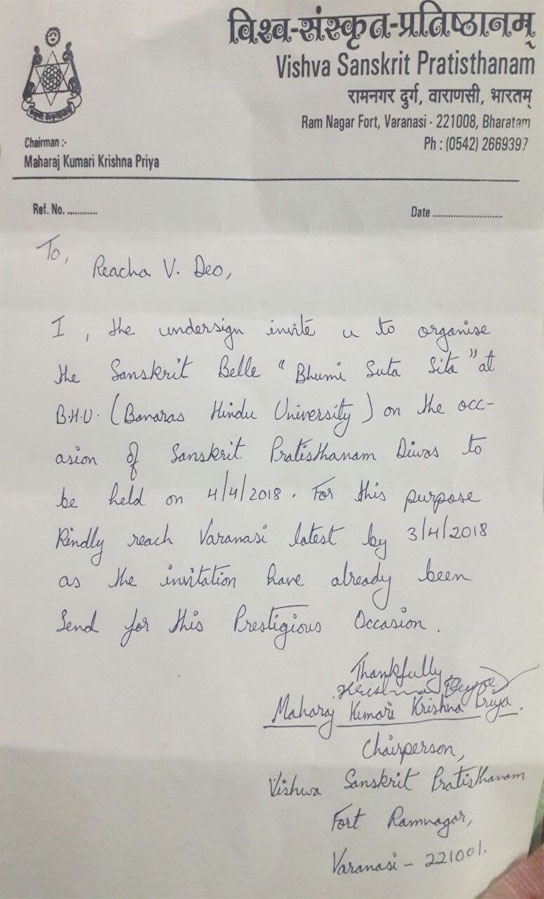 विश्व-संस्कृत-प्रतिष्ठानम्
Vishva Sanskrit Pratisthanam
रामनगर दुर्ग, वाराणसी, भारतम्
Ram Nagar Fort, Varanasi - 221008, Bharatam
Ph : (0542) 2669397
Chairman :-
Maharaj Kumari Krishna Priya
Ref. No. ............
Date ..........................
To,
Reacha V. Deo,
I, the undersign invite u to organise
the Sanskrit Belle "Bhumi Suta Sita" at
B.H.U. (Banaras Hindu University) on the occ-
asion of Sanskrit Pratisthanam Diwas to
be held on 4/4/2018. For this purpose
Kindly reach Varanasi latest by 3/4/2018
as the invitation have already been
Send for this Prestigious Occasion.
Thankfully,
Krishna Priya
Maharaj Kumari Krishna Priya.
Chairperson,
Vishwa Sanskrit Pratisthanam
Fort Ramnagar,
Varanasi - 221001.